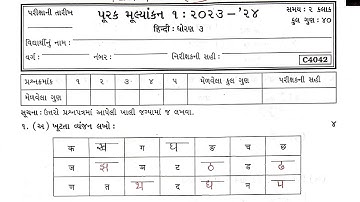 પરીક્ષાની તારીખ
પૂરક મૂલ્યાંકન ૧ : ૨૦૨૩ -'૨૪
સમય : ૨ કલાક
હિન્દી : ધોરણ ૩
કુલ ગુણ : ૪૦
વિદ્યાર્થીનું નામ :
વર્ગ : નંબર : નિરીક્ષકની સહી :
C4042
પ્રશ્નક્રમાંક ૧ ૨ ૩ ૪ ૫ મેળવેલા કુલ ગુણ પરીક્ષકની સહી
મેળવેલા ગુણ
સૂચના : ઉત્તરો પ્રશ્નપત્રમાં આપેલી ખાલી જગ્યામાં જ લખવા.
૧. (અ) ખૂટતા વ્યંજન લખો : ૪
क ख ग घ ङ च छ
ज झ ञ ट ठ ड ढ
ण त थ द ध न प